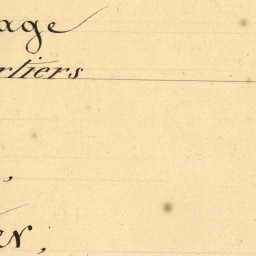 age
rtiers
,
en,